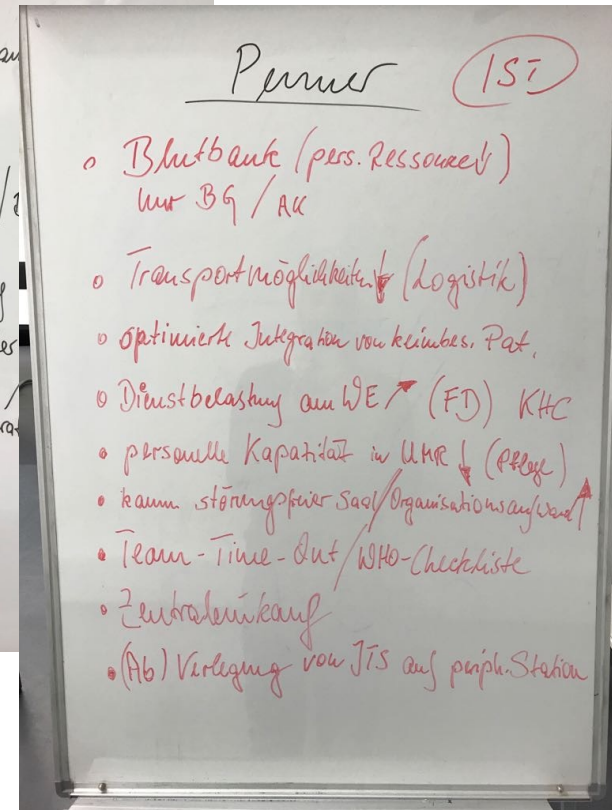 Penner
IST
Blutbank (pers. Ressourcen↓)
nur BG / AK
Transportmöglichkeiten↓ (Logistik)
optimierte Integration von keimbes. Pat.
Dienstbelastung am WE ↗ (FD) KHC
personelle Kapazität in UMR ↓ (Pflege)
kaum störungsfreier Saal/Organisationsaufwand↑
Team-Time-Out/WHO-Checkliste
Zentraleinkauf
(Ab) Verlegung von ITS auf periph. Station